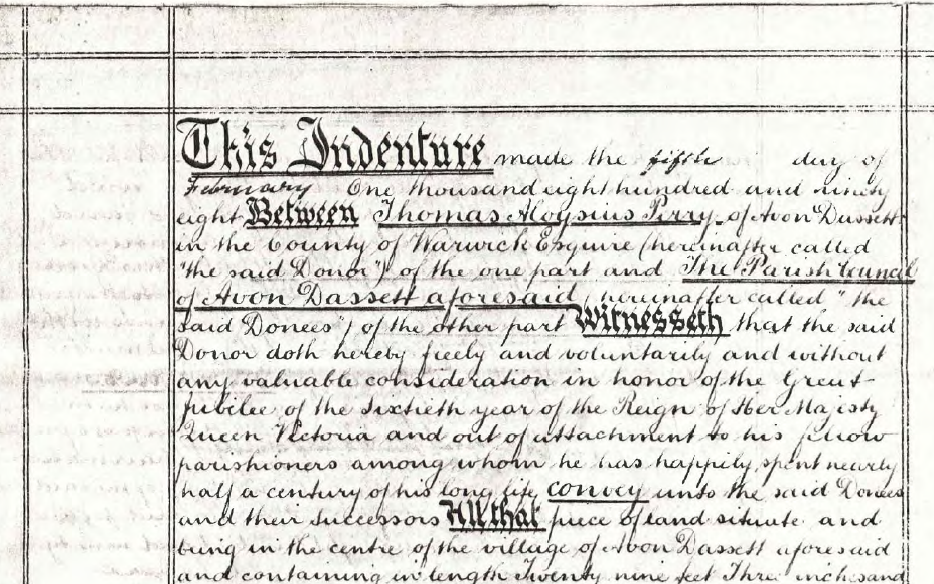 This Indenture made the fifth day of
February One thousand eight hundred and ninety
eight Between Thomas Aloysius Perry of Avon Dassett
in the County of Warwick Esquire (hereinafter called
"the said Donor") of the one part and The Parish Council
of Avon Dassett aforesaid (hereinafter called "the
said Donees") of the other part Witnesseth that the said
Donor doth hereby freely and voluntarily and without
any valuable consideration in honor of the Great
jubilee of the Sixtieth year of the Reign of Her Majesty
Queen Victoria and out of attachment to his fellow
parishioners among whom he has happily spent nearly
half a century of his long life convey unto the said Donees
and their successors All that piece of land situate and
being in the centre of the village of Avon Dassett aforesaid
and containing in length Twenty nine feet Three inches and